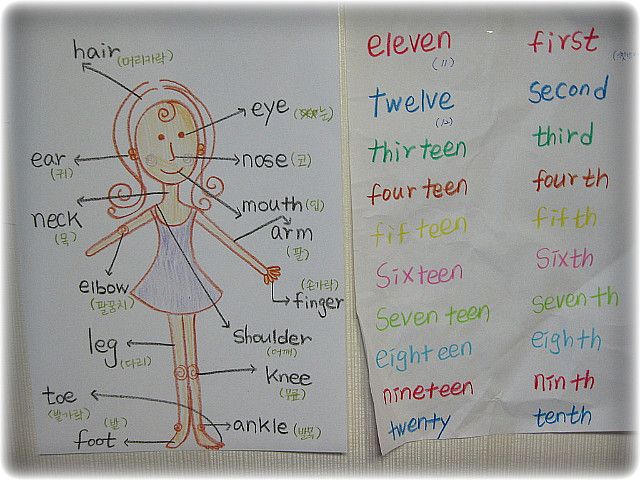 hair (머리카락)
eye (눈)
ear (귀)
nose (코)
mouth (입)
neck (목)
arm (팔)
elbow (팔꿈치)
finger (손가락)
shoulder (어깨)
leg (다리)
knee (무릎)
toe (발가락)
foot (발)
ankle (발목)
eleven (11) first
twelve (12) second
thirteen third
fourteen fourth
fifteen fifth
Sixteen Sixth
Seventeen Seventh
eighteen eighth
nineteen ninth
twenty tenth